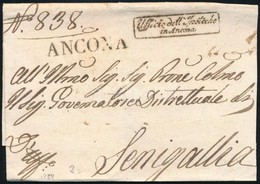 N.° 838.
Uffizio dell' Ispettor.
in Ancona
ANCONA
All' Illmo Sig. Sig. Prone Colmo
Il Sig. Governatore Distrettuale di
Senigallia